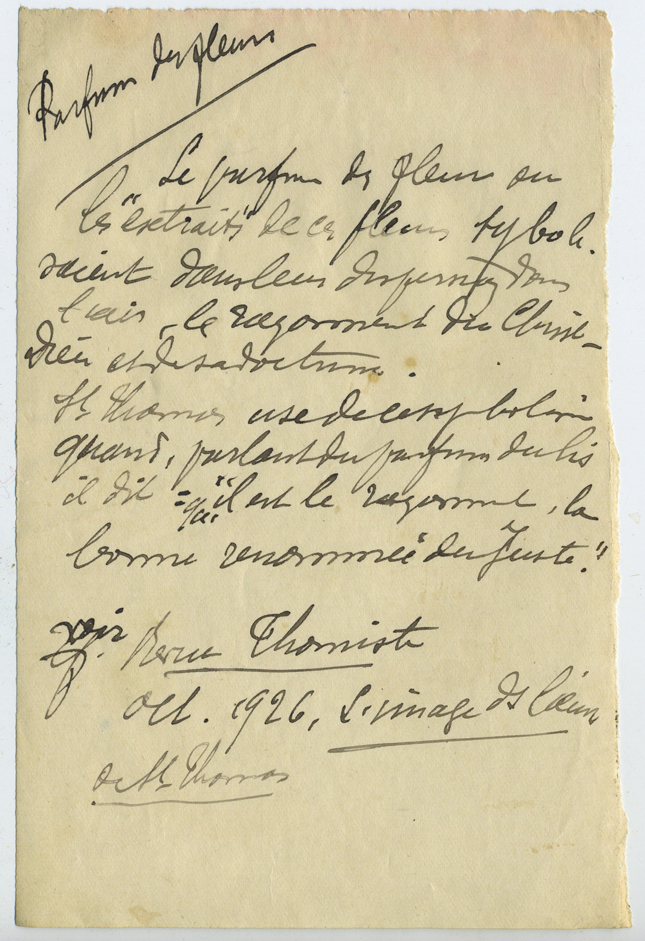 Parfum des fleurs
Le parfum des fleurs ou
les "extraits" de ces fleurs syboli-
saient dans leur dispersion dans
l'air, le rayonnement du Christ-
Dieu et de sa doctrine.
St Thomas use de ce symbolisme
quand, parlant du parfum du lis
il dit = qu' "il est le rayonnement, la
bonne renommée du Juste."
voir
Revue Thomiste
Oct. 1926, L'image ds l'œuvre
de St Thomas